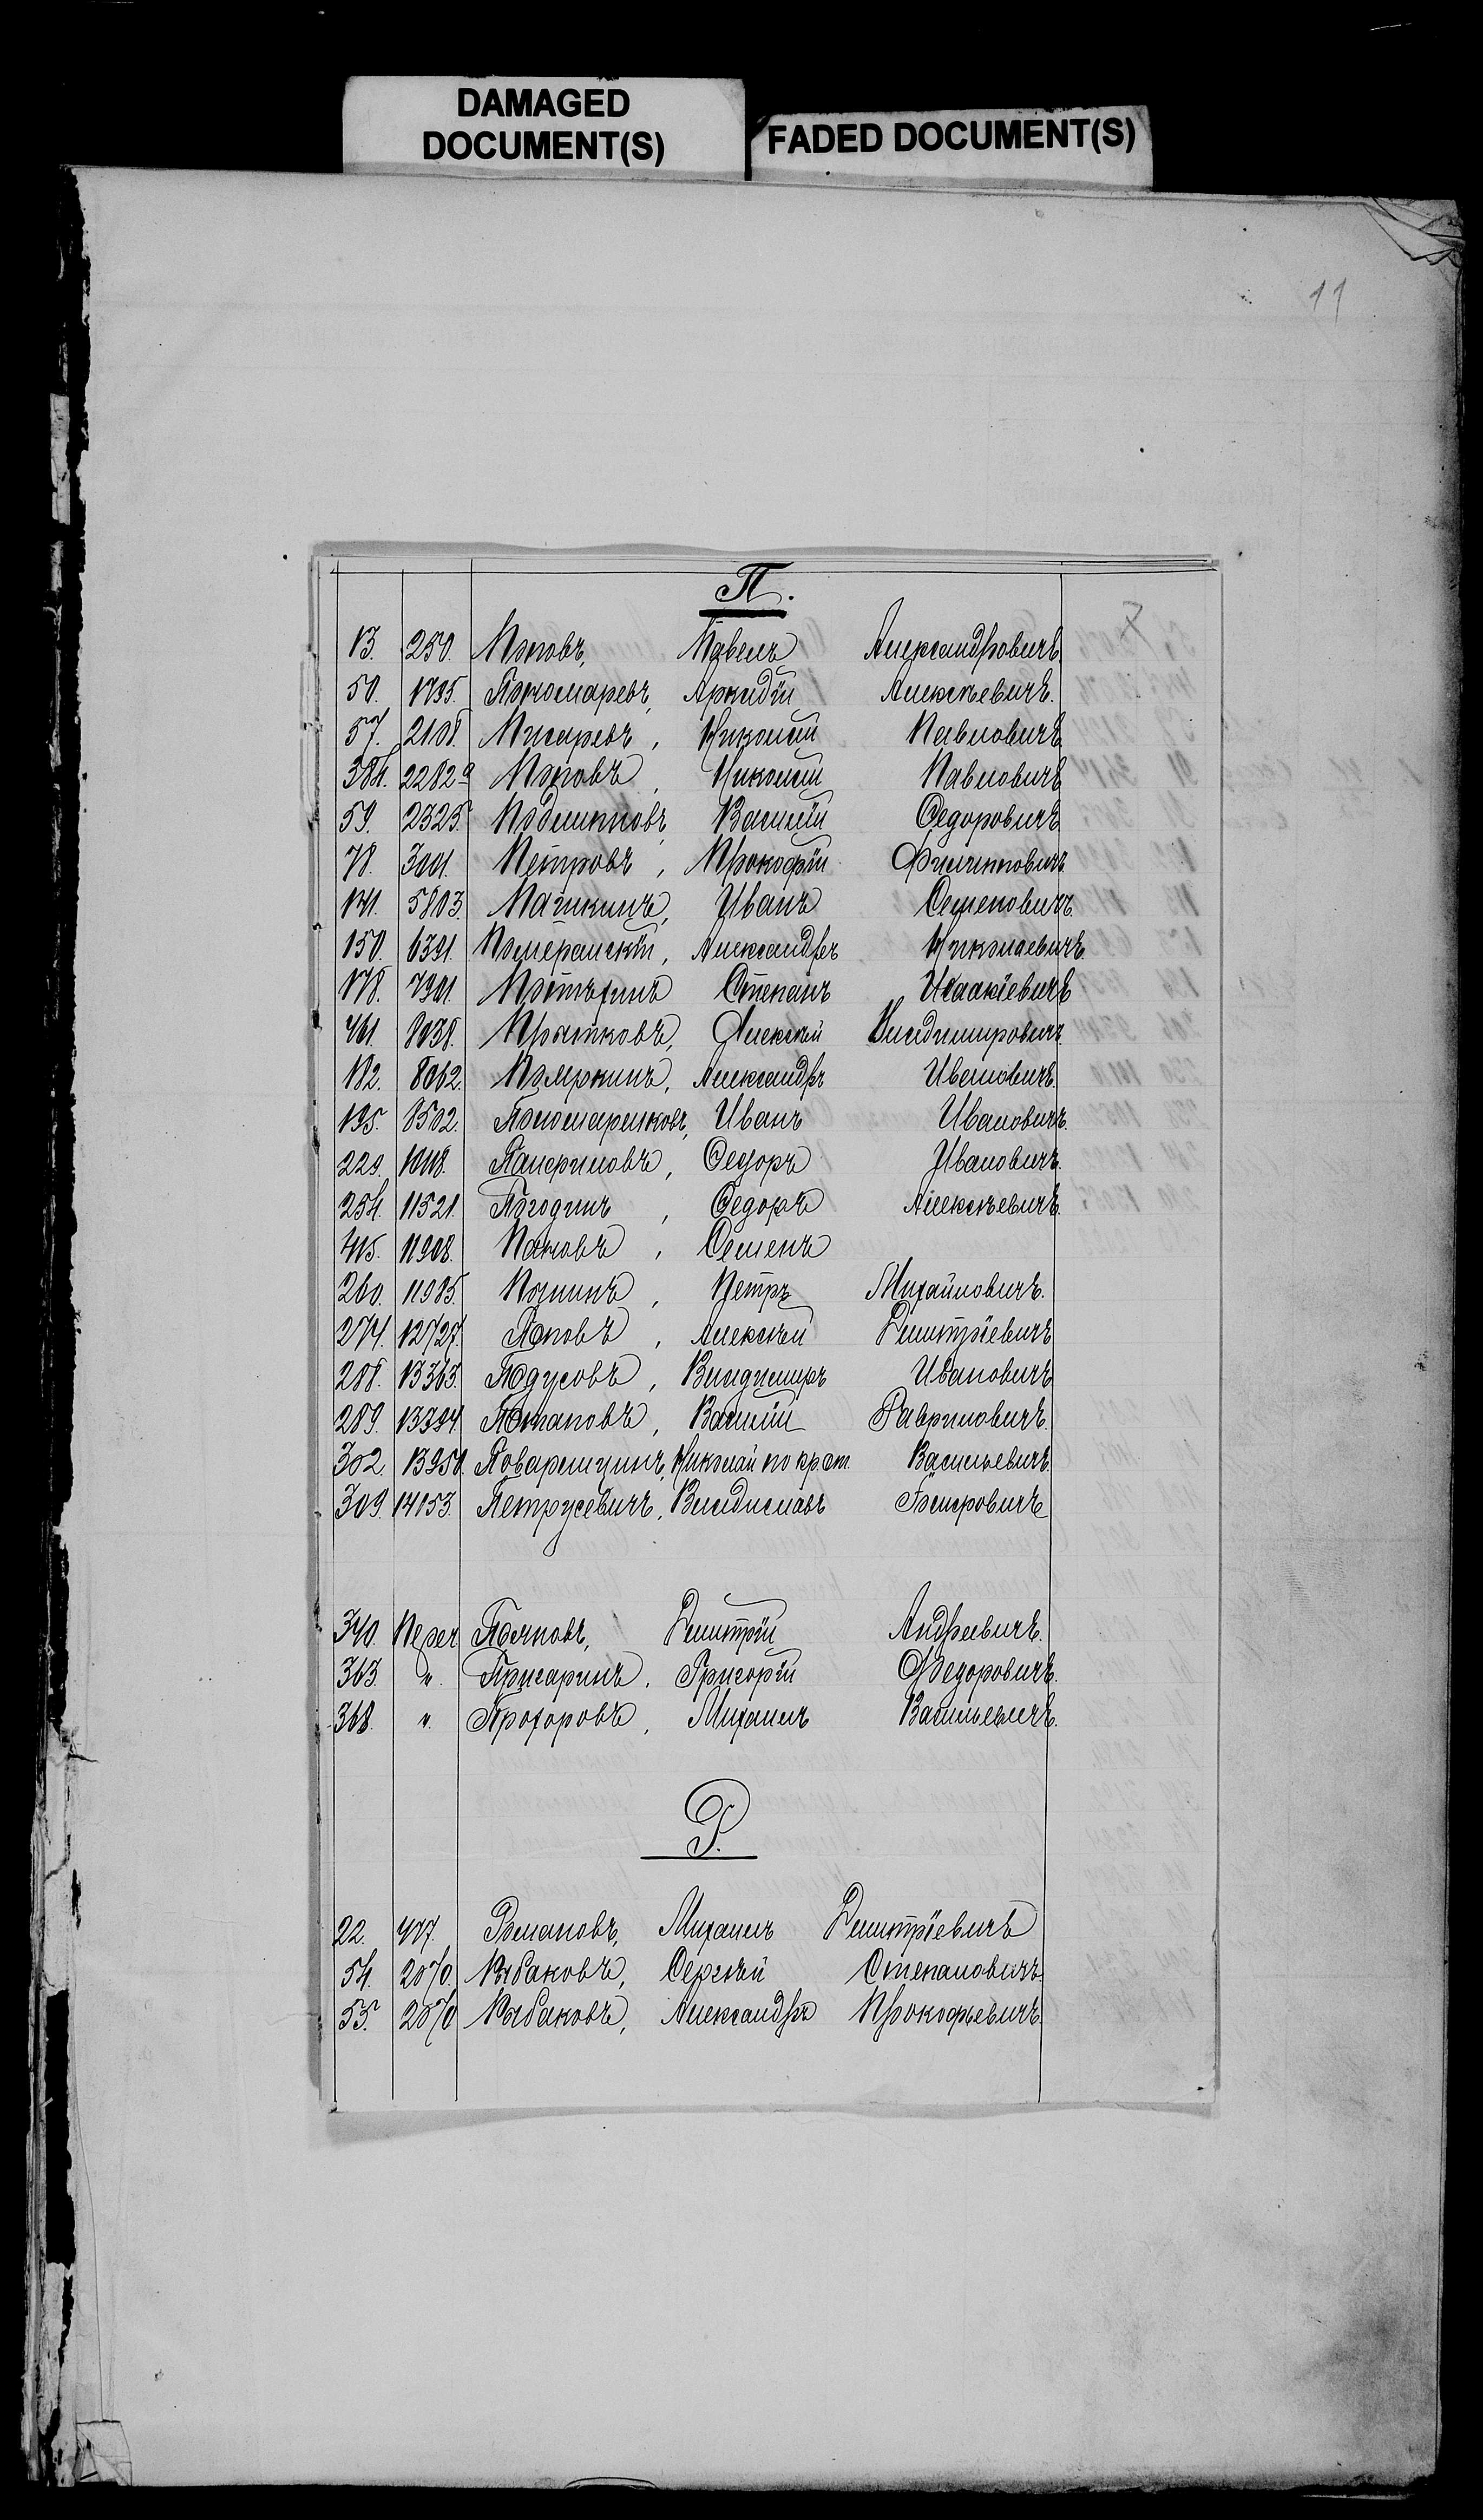 DAMAGED
DOCUMENT(S)
FADED DOCUMENT(S)
11
П.
13. 250. Поповъ, Павелъ Александровичъ
50. 1795. Пономаревъ, Аркадій Алексѣевичъ.
57. 2108. Писаревъ, Николай Павловичъ
384. 2282а Поповъ, Николай Павловичъ
59. 2325. Подшипковъ, Василій Федоровичъ
78. 3001. Петровъ, Прокофій Филипповичъ
141. 5803. Пашкинъ, Иванъ Семеновичъ.
150. 6391. Померанскій, Александръ Николаевичъ
178. 7901. Потѣхинъ Степанъ Исаакіевичъ
461. 8038. Прытковъ, Алексѣй Владимировичъ
182. 8062. Помркинъ, Александръ Ивановичъ.
195. 8502. Пономаренковъ, Иванъ Ивановичъ.
229. 10118. Панфиловъ, Федоръ Ивановичъ.
254. 11521. Погодинъ, Федоръ Алексѣевичъ.
415. 11908. Паковъ, Семенъ
260. 11985. Починъ, Петръ Михайловичъ.
274. 12727. Поповъ, Алексѣй Дмитріевичъ
288. 13363. Подусовъ, Владимиръ Ивановичъ
289. 13394. Потаповъ, Василій Гавриловичъ.
302. 13950. Поварешкинъ, Николай по крест. Васильевичъ.
309. 14053. Петрусевичъ, Владиславъ Боисровичъ
340. Переч Поляковъ, Дмитрій Андреевичъ.
363. " Присаринъ, Григорій Федоровичъ.
368. " Прохоровъ, Михаилъ Васильевичъ.
Р.
22. 477. Романовъ, Михаилъ Дмитріевичъ
54. 2070. Рыбаковъ, Сергѣй Степановичъ
55. 2070 Рыбаковъ, Александръ Прокофьевичъ